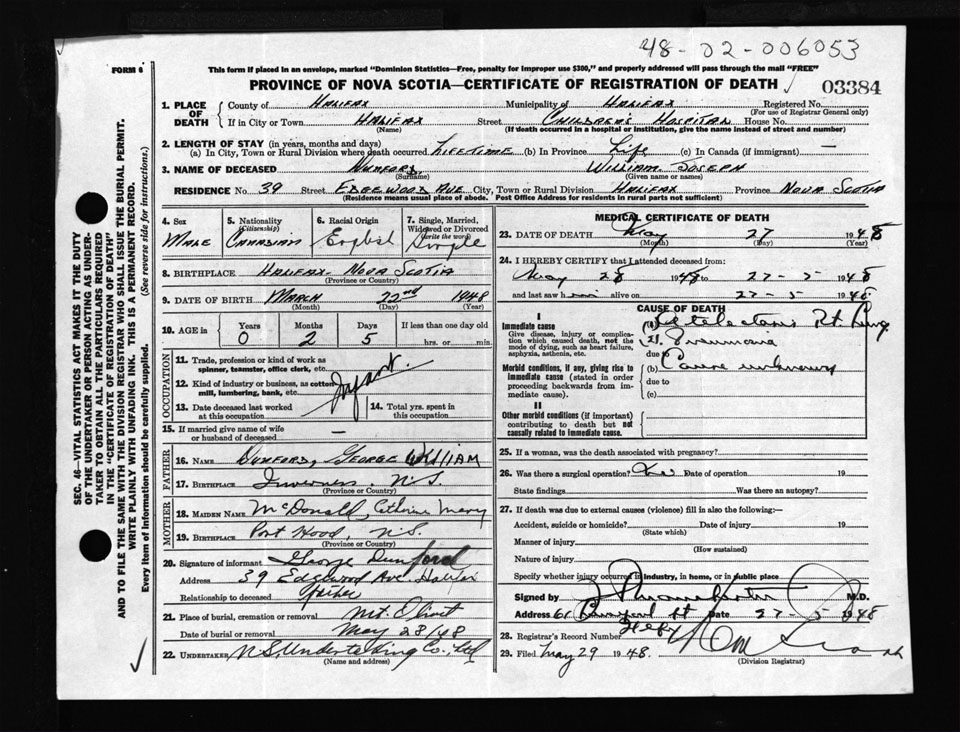 48-02-006053
FORM 6
This form if placed in an envelope, marked "Dominion Statistics—Free, penalty for improper use $300," and properly addressed will pass through the mail "FREE"
PROVINCE OF NOVA SCOTIA—CERTIFICATE OF REGISTRATION OF DEATH
03384
1. PLACE OF DEATH
County of HALIFAX Municipality of HALIFAX Registered No.
(For use of Registrar General only)
If in City or Town HALIFAX Street CHILDREN'S HOSPITAL House No.
(Name) (If death occurred in a hospital or institution, give the name instead of street and number)
2. LENGTH OF STAY (in years, months and days)
(a) In City, Town or Rural Division where death occurred LIFETIME (b) In Province Life (c) In Canada (if immigrant) —
3. NAME OF DECEASED DUNFORD, WILLIAM JOSEPH
(Surname) (Given name or names)
RESIDENCE No. 39 Street EDGEWOOD AVE City, Town or Rural Division HALIFAX Province NOVA SCOTIA
(Residence means usual place of abode. Post Office Address for residents in rural parts not sufficient)
4. Sex
MALE
5. Nationality
(Citizenship)
CANADIAN
6. Racial Origin
English
7. Single, Married, Widowed or Divorced
(write the word)
Single
8. BIRTHPLACE HALIFAX NOVA SCOTIA
(Province or Country)
9. DATE OF BIRTH MARCH 22nd 1948
(Month) (Day) (Year)
10. AGE in
Years Months Days If less than one day old
0 2 5 hrs. or min.
OCCUPATION
11. Trade, profession or kind of work as spinner, teamster, office clerk, etc.
12. Kind of industry or business, as cotton mill, lumbering, bank, etc.
Infant
13. Date deceased last worked at this occupation
14. Total yrs. spent in this occupation
15. If married give name of wife or husband of deceased —
FATHER
16. NAME DUNFORD, GEORGE WILLIAM
17. BIRTHPLACE Inverness, N.S.
(Province or Country)
MOTHER
18. MAIDEN NAME McDonald, Catherine Mary
19. BIRTHPLACE Port Hood, N.S.
(Province or Country)
20. Signature of informant George Dunford
Address 39 Edgewood Ave Halifax
Relationship to deceased father
21. Place of burial, cremation or removal Mt. Olivet
Date of burial or removal May 28/48
22. UNDERTAKER N.S. Undertaking Co. Ltd
(Name and address)
MEDICAL CERTIFICATE OF DEATH
23. DATE OF DEATH May 27 1948
(Month) (Day) (Year)
24. I HEREBY CERTIFY that I attended deceased from:
May 26 1948 to 27-5 1948
and last saw him alive on 27-5 1948
CAUSE OF DEATH
I
Immediate cause
Give disease, injury or complication which caused death, not the mode of dying, such as heart failure, asphyxia, asthenia, etc.
(a) Atelectasis Rt. Lung
Pneumonia
due to
Morbid conditions, if any, giving rise to immediate cause (stated in order proceeding backwards from immediate cause).
(b) Cause unknown
due to
(c)
II
Other morbid conditions (if important) contributing to death but not causally related to immediate cause.
25. If a woman, was the death associated with pregnancy?
26. Was there a surgical operation? Date of operation 19
State findings Was there an autopsy?
27. If death was due to external causes (violence) fill in also the following:
Accident, suicide or homicide? Date of injury 19
(State which)
Manner of injury
(How sustained)
Nature of injury
Specify whether injury occurred in industry, in home, or in public place
Signed by M.D.
Address 61 St Date 27-5 1948
28. Registrar's Record Number
29. Filed May 29 1948.
(Division Registrar)
SEC. 46—VITAL STATISTICS ACT MAKES IT THE DUTY
OF THE UNDERTAKER OR PERSON ACTING AS UNDERTAKER
TO OBTAIN ALL THE PARTICULARS REQUIRED
IN THE "CERTIFICATE OF REGISTRATION OF DEATH"
AND TO FILE THE SAME WITH THE DIVISION REGISTRAR WHO SHALL ISSUE THE BURIAL PERMIT.
WRITE PLAINLY WITH UNFADING INK. THIS IS A PERMANENT RECORD.
Every item of information should be carefully supplied. (See reverse side for instructions.)